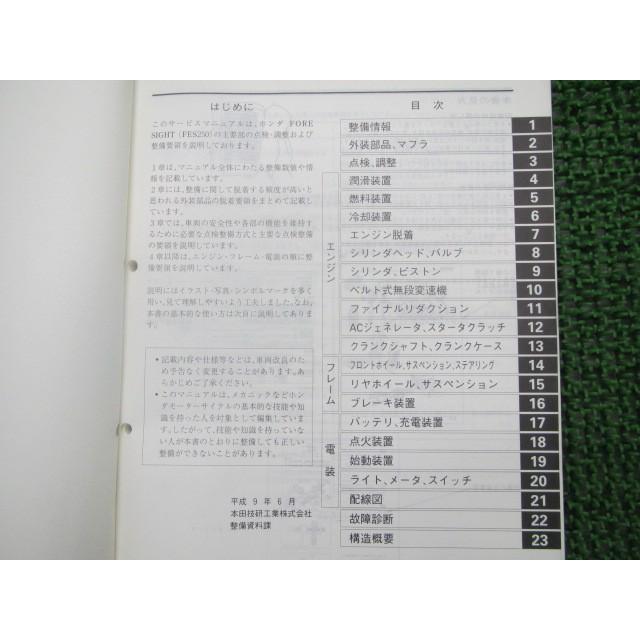 はじめに
このサービスマニュアルは、ホンダ FORE
SIGHT (FES250) の主要部の点検・調整および
整備要領を説明しております。
1章は、マニュアル全体にわたる整備数値や情
報を記載しています。
2章には、整備に関して脱着する頻度が高いと
思われる外装部品の脱着要領をまとめて記載し
ています。
3章では、車両の安全性や各部の機能を維持す
るために必要な点検整備方式と主要な点検整備
の要領を説明しています。
4章以降は、エンジン・フレーム・電装の順に整
備要領を説明しています。
説明にはイラスト・写真・シンボルマークを多く
用い、見て理解しやすいよう工夫しました。なお、
本書の基本的な使い方は次頁に説明してありま
す。
• 記載内容や仕様等などは、車両改良のた
め予告なく変更することがあります。あ
らかじめご了承ください。
• このマニュアルは、メカニックなどホン
ダモーターサイクルの基本的な技能や知
識を持った人を対象として編集していま
す。したがって、技能や知識を持っていな
い人が本書のとおりに整備しても正しい
整備ができないことがあります。
平成 9 年 6 月
本田技研工業株式会社
整備資料課
目 次
整備情報 1
外装部品、マフラ 2
点検、調整 3
エンジン
潤滑装置 4
燃料装置 5
冷却装置 6
エンジン脱着 7
シリンダヘッド、バルブ 8
シリンダ、ピストン 9
ベルト式無段変速機 10
ファイナルリダクション 11
ACジェネレータ、スタータクラッチ 12
クランクシャフト、クランクケース 13
フレーム
フロントホイール、サスペンション、ステアリング 14
リヤホイール、サスペンション 15
ブレーキ装置 16
電装
バッテリ、充電装置 17
点火装置 18
始動装置 19
ライト、メータ、スイッチ 20
配線図 21
故障診断 22
構造概要 23